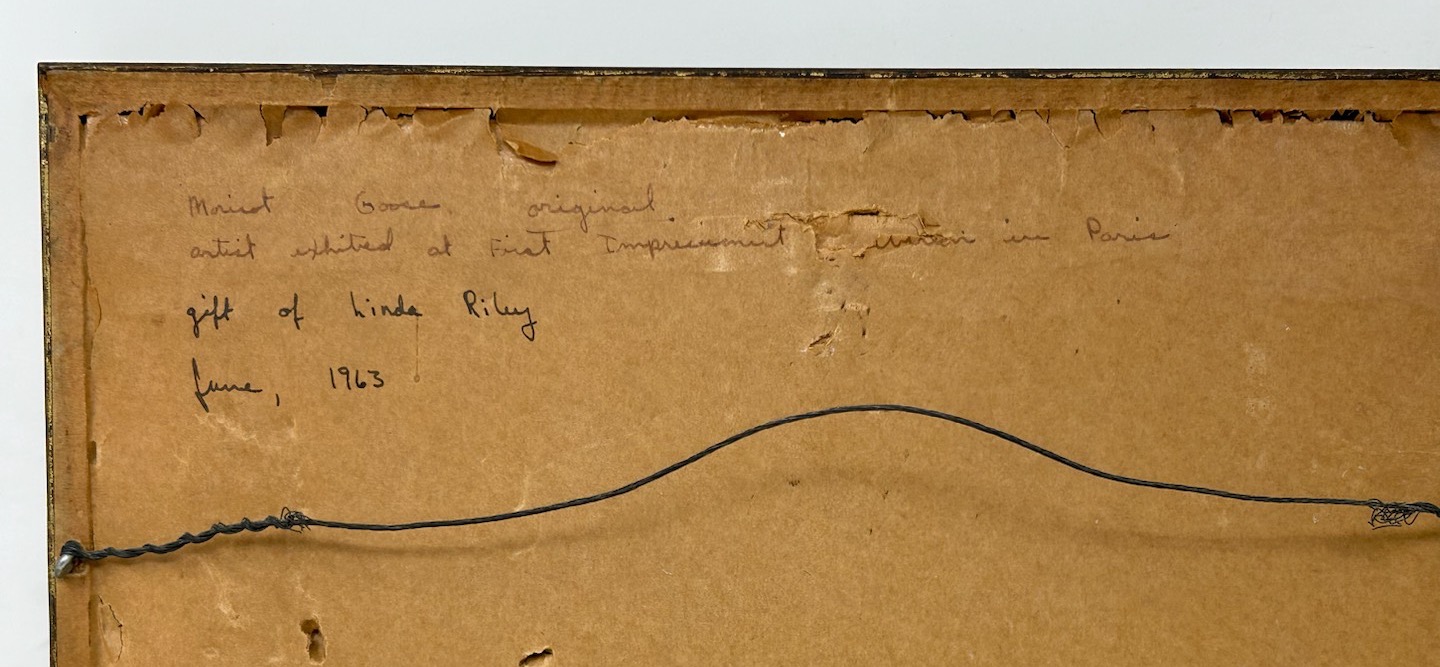 Morisot Goose original
artist exhitied at First Impressionist in Paris
gift of Linda Riley
June, 1963